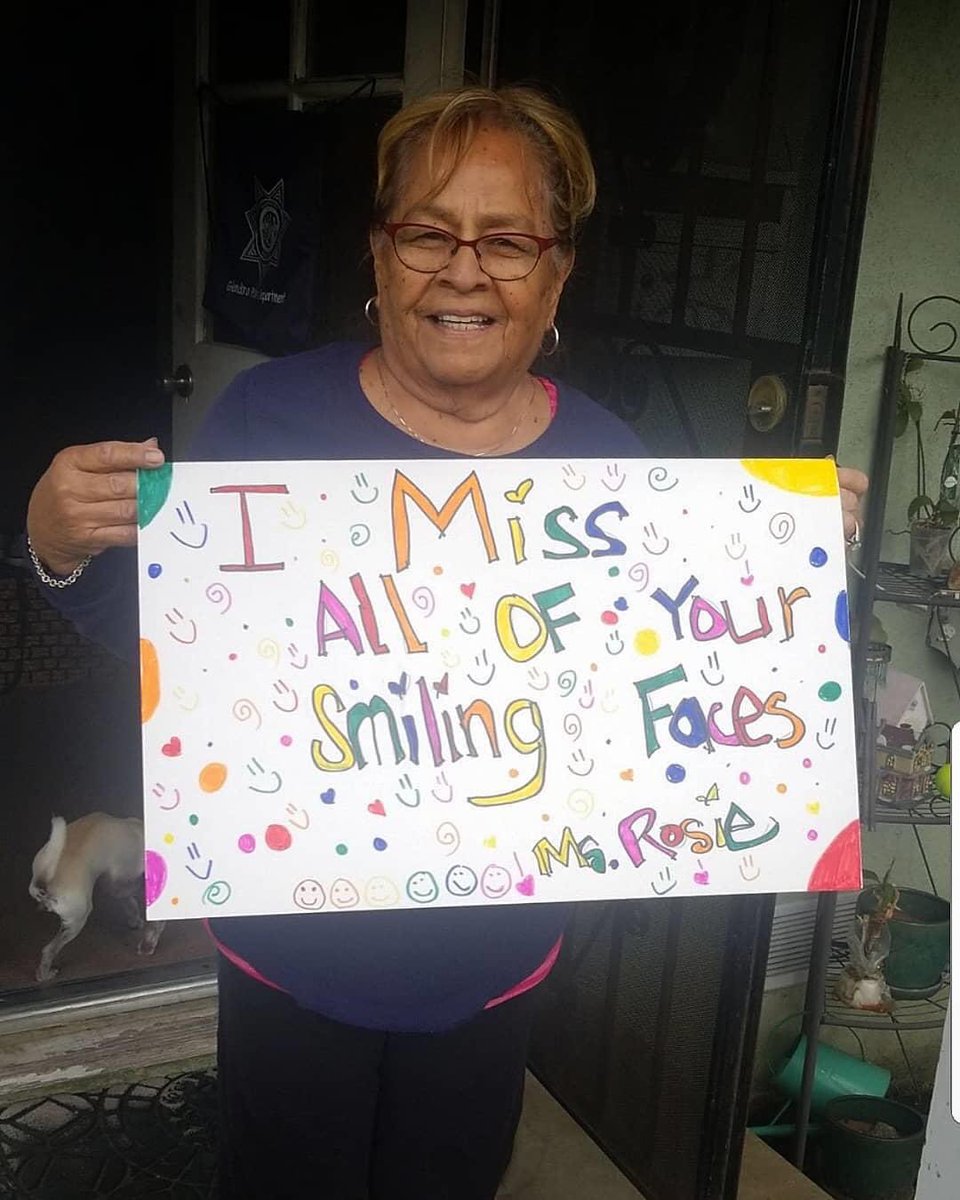 Glendora Police Department
I Miss
All OF Your
Smiling Faces
Ms. Rosie